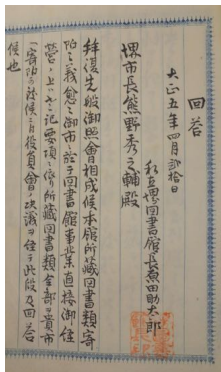 回答
大正五年四月弐拾日
私立堺図書館長煮田助太郎
堺市長熊野秀之輔殿
拝復先般御照會相成候本館所蔵図書類寄
附之義愈々御市ニ於テ図書館事業直接御経
営ノ上ハ左記要項ニ依リ所蔵図書類全部ヲ貴市
ヘ寄附可致候ニ付役員會ノ決議ヲ経テ此段及回答
候也